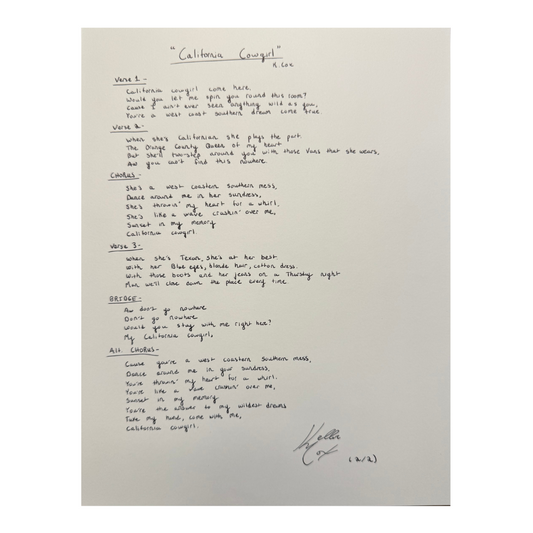 "California Cowgirl"
K. Cox
Verse 1 -
California cowgirl come here.
Would you let me spin you round this room?
Cause I ain't ever seen anything wild as you,
You're a west coast southern dream come true.
Verse 2 -
When she's Californian she plays the part.
The Orange County Queen of my heart
But she'll two-step around you with those Vans that she wears,
Aw you can't find this nowhere.
CHORUS -
She's a west coastern southern mess,
Dance around me in her sundress,
She's throwin' my heart for a whirl.
She's like a wave crashin' over me,
Sunset in my memory
California cowgirl.
Verse 3 -
When she's Texan, she's at her best.
With her blue eyes, blonde hair, cotton dress.
With those boots and her jeans on a Thursday night
Man we'll close down the place every time.
BRIDGE -
Aw don't go nowhere
Don't go nowhere
Would you stay with me right here?
My California cowgirl,
Alt. CHORUS -
Cause you're a west coastern southern mess,
Dance around me in your sundress,
You're throwin' my heart for a whirl.
You're like a wave crashin' over me,
Sunset in my memory
You're the answer to my wildest dreams
Take my hand, come with me,
California cowgirl.
Cox
(2/2)